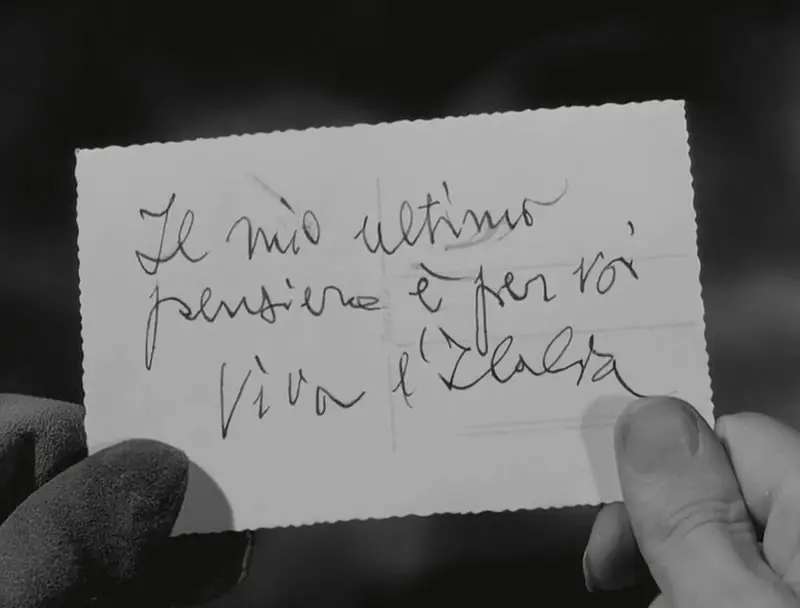 Il mio ultimo
pensiero è per voi
Viva l'Italia